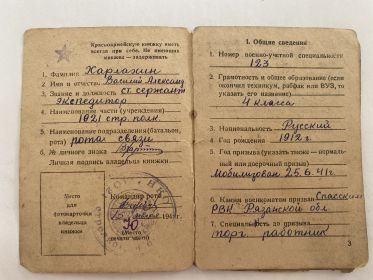 Красноармейскую книжку иметь
всегда при себе. Не имеющих
книжек — задерживать
1. Фамилия Харлахин
2. Имя и отчество Василий Александ
3. Звание и должность ст. сержант
экспедитор
4. Наименование части (учреждения)
1921 стр. полк.
5. Наименование подразделения (батальон,
рота) рота связи
6. № личного знака
Личная подпись владельца книжки
Место
для
фотокарточки
владельца
книжки
Командир роты
194 г.
(Место
печати части)
I. Общие сведения
1. Номер военно-учетной специальности
123
2. Грамотность и общее образование (если
окончил техникум, рабфак или ВУЗ, то
указать его название)
4 класса
3. Национальность Русский
4. Год рождения 1912 г.
5. Год призыва (указать также — нормаль-
ный или досрочный призыв)
Мобилизован 25.6.41г.
6. Каким военкоматом призван Спасским
РВК Рязанской обл
7. Специальность до призыва
торг. работник
3